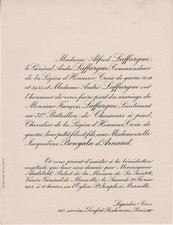 Madame Alfred Laffargue,
le Général André Laffargue, Commandeur
de la Légion d'Honneur, Croix de guerre 14-18
et 39-45, et Madame André Laffargue ont
l'honneur de vous faire part du mariage de
Monsieur François Laffargue, Lieutenant
au 31e Bataillon de Chasseurs à pied,
Chevalier de la Légion d'Honneur, Croix de
guerre, leur petit-fils et fils, avec Mademoiselle
Jacqueline Bougala d'Arnaud.
Et vous prient d'assister à la bénédiction
nuptiale qui leur sera donnée par Monseigneur
Audibert, Prélat de la Maison de Sa Sainteté,
Vicaire Général de Marseille, le Samedi
à heures, en l'Église St Joseph, à Marseille.
Légendes / Gers
avenue Denfert-Rochereau, Paris